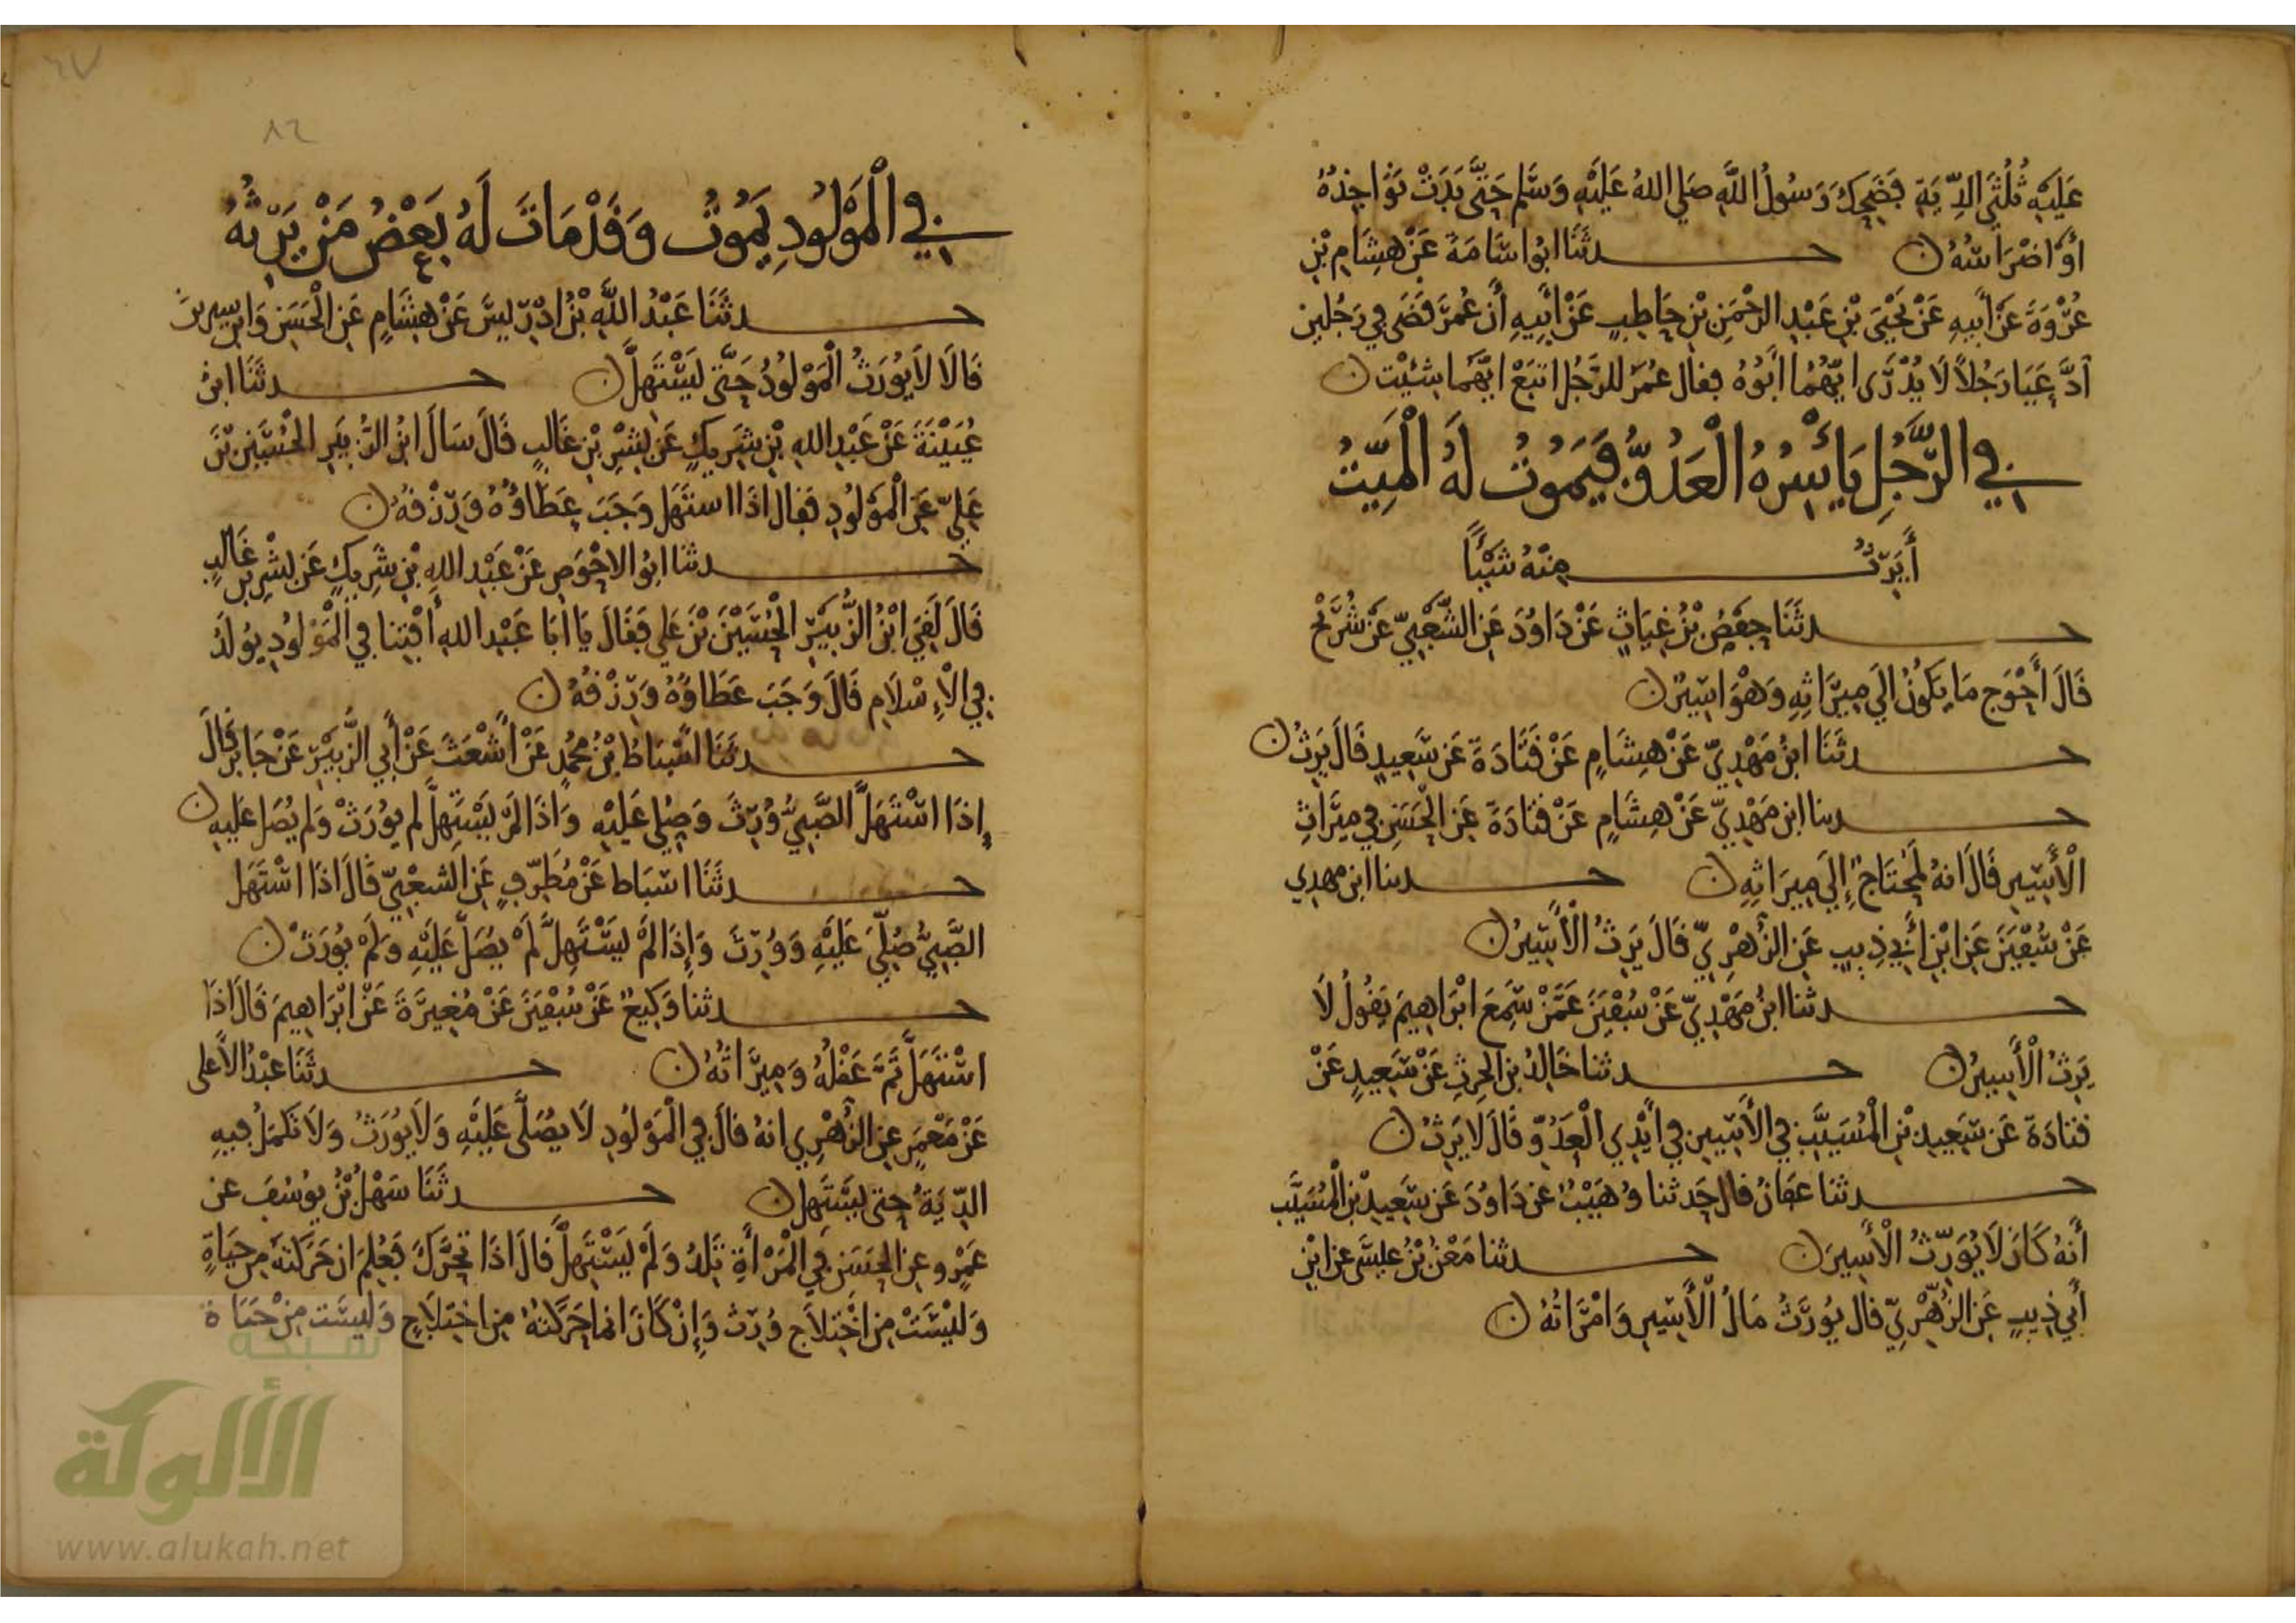 عَلَيْهِ ثُلُثَيِ الدِّيَةِ فَضَحِكَ رَسُولُ اللَّهِ صَلى اللهُ عَلَيْهِ وَسَلم حَتَّى بَدَتْ نَوَاجِذُهُ
أَوْ اضْرَاسُهُ ن حـدثَنَا ابُو اسَامَةَ عَنْ هِشَامِ بْنِ
عُرْوَةَ عَنْ أَبِيهِ عَنْ يَحْيَى بْنِ عَبْدِ الرَّحْمَنِ بْنِ حَاطِبٍ عَنْ أَبِيهِ أَن عُمَرَ قَضَى فِي رَجُلَيْنِ
ادَّعَيَا رَجُلاً لَا يُدْرَى ايُّهُمَا ابُوهُ فقال عُمَرُ للرَّجُل اتبَعْ ايَّهُمَا شئِتْ ن
فِي الرَّجُلِ يَأْسِرُهُ الْعَدُوُّ فَيَمُوتُ لَهُ الْمَيِّتُ
أَيَرِثُ مِنْهُ شَيْئًا
حـدثَنَا حَفْصُ بْنُ غِيَاثٍ عَنْ دَاوُدَ عَنِ الشَّعْبِيِّ عَنْ شُرَيْحٍ
قَالَ أَحْوَج مَا يَكُونُ الَي مِيرَاثِهِ وَهْوَ اسِيرٌ ن
حـدثَنَا ابْنُ مَهْدِيٍّ عَنْ هِشَامٍ عَنْ قَتَادَةَ عَن سَعِيدٍ قَالَ يَرِثُ ن
حـدثنا ابن مَهْدِيٍّ عَنْ هِشَامٍ عَنْ قَتَادَةَ عَنِ الْحَسَنِ فِي مِيرَاثِ
الْأَسِيرِ قَالَ انهُ لَمُحْتَاجٌ إِلَي مِيرَاثِهِ ن حـدثنا ابن مهدي
عَنْ سُفْيَنَ عَنِ ابْنِ أَبِي ذِيبٍ عَنِ الزُّهْرِيِّ قَالَ يَرِثُ الْأَسِيرُ ن
حـدثنا ابْنُ مَهْدِيٍّ عَنْ سُفْيَنَ عَمَّنْ سَمِعَ ابْرَاهِيمَ يَقُولُ لَا
يَرِثُ الْأَسِيرُ ن حـدثنا خَالِدُ بن الحرث عَنْ سَعِيدٍ عَنْ
قتادَةَ عَن سَعِيدِ بْنِ الْمُسَيَّبِ فِي الأَسِيرِ فِي أَيْدِي الْعَدُوِّ قَالَ لا يَرِثُ ن
حـدثنا عَفَانُ قال حَدثنا وُهَيْبٌ عَن دَاوُدَ عَن سَعِيدِ بْنِ الْمُسَيَّبِ
أَنهُ كَانَ لَا يُوَرِّثُ الْأَسِيرَ ن حـدثنا مَعْنُ بْنُ عيسَى عن ابْنِ
أَبِي ذِيبٍ عَنِ الزُّهْرِيِّ قال يُوَرَّثُ مَالُ الْأَسِيرِ وَامْرَاتُهُ ن
٨٢
فِي الْمَوْلُودِ يَمُوتُ وَقَدْ مَاتَ لَهُ بَعْضُ مَنْ يَرِثُهُ
حـدثَنَا عَبْدُ اللَّهِ بْنُ ادْرِيسَ عَنْ هِشَامٍ عَنِ الْحَسَنِ وَابْنِ سِيرِينَ
قَالَا لَا يُوَرَثُ الْمَوْلُودُ حَتَّى يَسْتَهِلَّ ن حـدثَنَا ابنُ
عُيَيْنَةَ عَنْ عَبْدِ اللهِ بْنِ شَرِيكٍ عَنْ بِشْرِ بْنِ غَالِبٍ قَالَ سَالَ ابْنُ الزُّبَيْرِ الحُسَيْنَ بْنَ
عَلِيٍّ عَنِ الْمَوْلُودِ فَقَال اذَا اسْتَهَل وَجَبَ عَطَاؤُهُ وَرِزْقُهُ ن
حـدثنا ابُو الاحْوَصِ عَنْ عَبْدِ اللهِ بْنِ شَرِيكٍ عَن بِشْرِ بْنِ غَالِبٍ
قَالَ لَقِيَ ابْنُ الزُّبَيْرِ الْحُسَيْنَ بْنَ عَلي فَقَالَ يَا ابَا عَبْدِ اللهِ أَفْتِنَا فِي الْمَوْلُودِ يُولَدُ
فِي الْإِسْلَامِ قَالَ وَجَبَ عَطَاوُهُ وَرِزْقُهُ ن
حـدثَنَا اسْبَاطُ بْنُ مُحَمَّدٍ عَنْ أَشْعَثَ عَنْ أَبِي الزُّبَيْرِ عَنْ جَابِرٍ قَالَ
إِذَا اسْتَهَلَّ الصَّبِيُّ وُرِّثَ وَصُلِّيَ عَلَيْهِ وَاذَا لَمْ يَسْتَهِلَّ لم يُورَثْ وَلم يُصَل عَلَيه ن
حـدثَنَا اسْبَاط عَنْ مُطَرِّفٍ عَنِ الشعْبِيِّ قَالَ اذَا اسْتَهَل
الصَّبِيُّ صُلِّيَ عَلَيْهِ وَوُرِّثَ وَإِذَا لَمْ يَسْتَهِلَّ لَمْ يُصَلَّ عَلَيْهِ وَلَمْ يُورَثْ ن
حـدثنا وَكِيعٌ عَنْ سُفْيَنَ عَنْ مُغِيرَةَ عَنْ ابْرَاهِيمَ قَالَ اذَا
اسْتَهَلَّ تَمَّ عَقْلُهُ وَمِيرَاثُهُ ن حـدثَنَا عَبْدُ الأَعلى
عَنْ مَعْمَرٍ عنِ الزُّهْرِي انهُ قَالَ فِي الْمَوْلُودِ لَا يُصَلَّى عَلَيْهِ وَلَا يُوَرَثُ وَلَا تَكْمُلُ فِيهِ
الدِّيَةُ حتى يَسْتَهِل ن حـدثَنَا سَهْلُ بْنُ يُوسُفَ عن
عَمْرٍو عنِ الحَسَنِ فِي الْمَرْأَةِ تَلِدُ وَلَمْ يَسْتَهِلَّ قَالَ اذَا تَحَرَّكَ فَعُلِمَ ان حَرَكَتَهُ مِن حَيَاةٍ
وَلَيْسَتْ مِن اخْتِلَاجٍ وُرِّثَ وَإِنْ كَانَ انمَا حَرَكَتُهُ مِن اخْتِلَاجٍ وَلَيْسَت مِنْ حَيَاة
شبكة
الألوكة
www.alukah.net